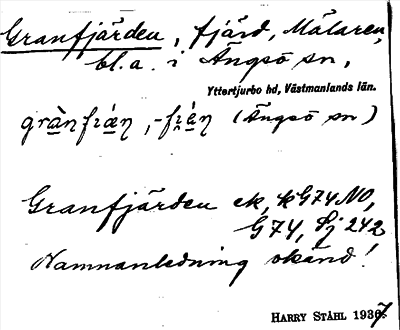 Granfjärden, fjärd, Mälaren,
bl. a. i Ängsö sn,
Yttertjurbo hd, Västmanlands län.
(Ängsö sn)
Granfjärden ek, G74 NO,
G74, Sj 242
Namnanledning okänd!
HARRY STÅHL 1937